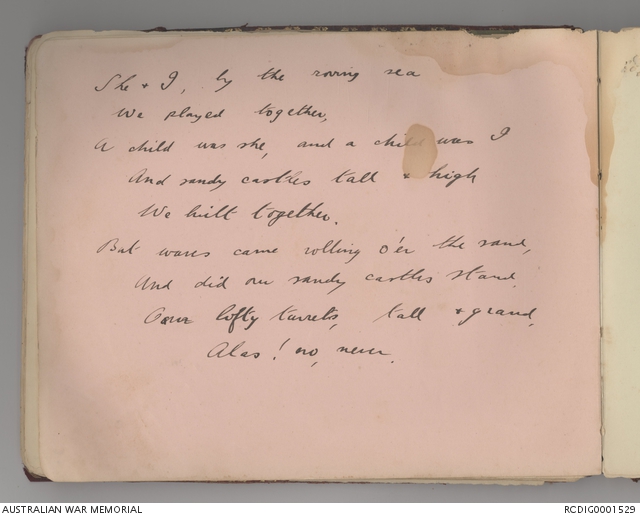 She & I, by the roving sea
We played together,
A child was she, and a child was I
And sandy castles tall & high
We built together.
But waves came rolling o'er the sand,
And did our sandy castles stand.
Our lofty turrets, tall & grand,
Alas! no, never.
AUSTRALIAN WAR MEMORIAL
RCDIG0001529